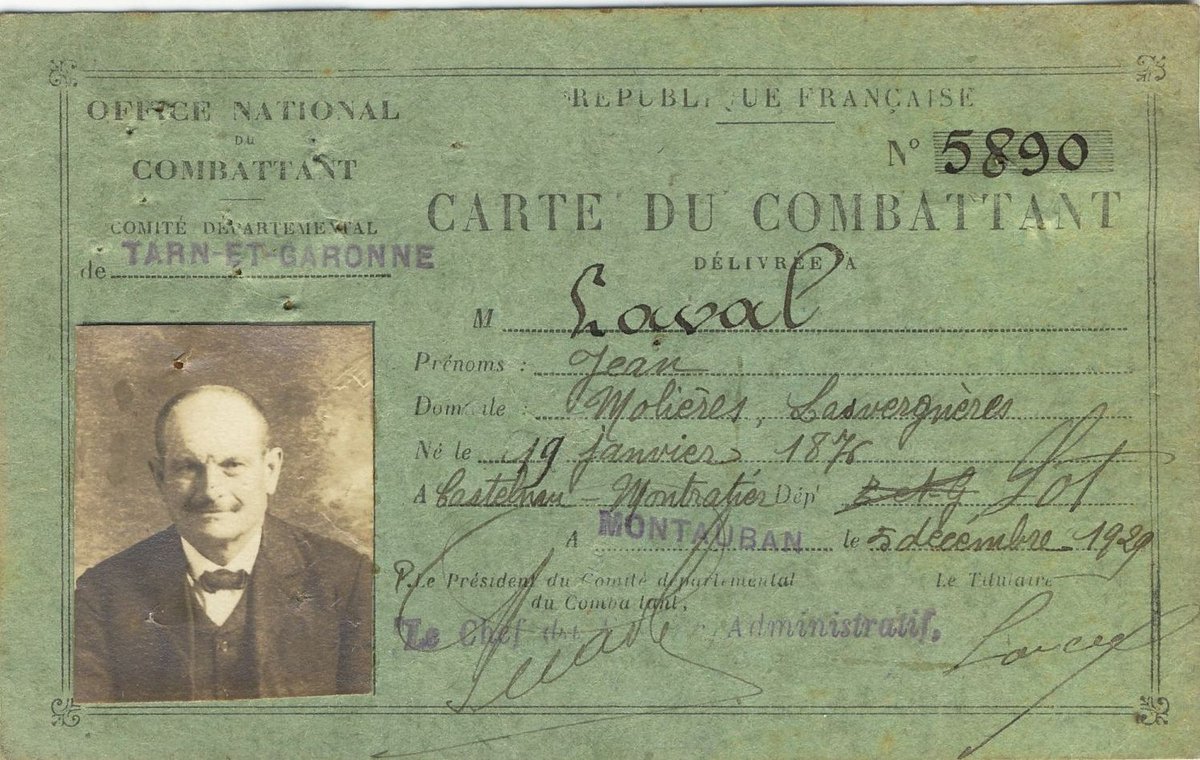 OFFICE NATIONAL
DU
COMBATTANT
COMITÉ DÉPARTEMENTAL
de TARN-ET-GARONNE
RÉPUBLIQUE FRANÇAISE
N° 5890
CARTE DU COMBATTANT
DÉLIVRÉE A
M Laval
Prénoms : Jean
Domicile : Molières, Lasvergnères
Né le 19 janvier 1876
A Castelnau-Montratier Dépt T et G Lot
A MONTAUBAN le 5 décembre 1929
P. Le Président du Comité départemental
du Combattant,
Le Titulaire
Le Chef du Administratif.
Laval